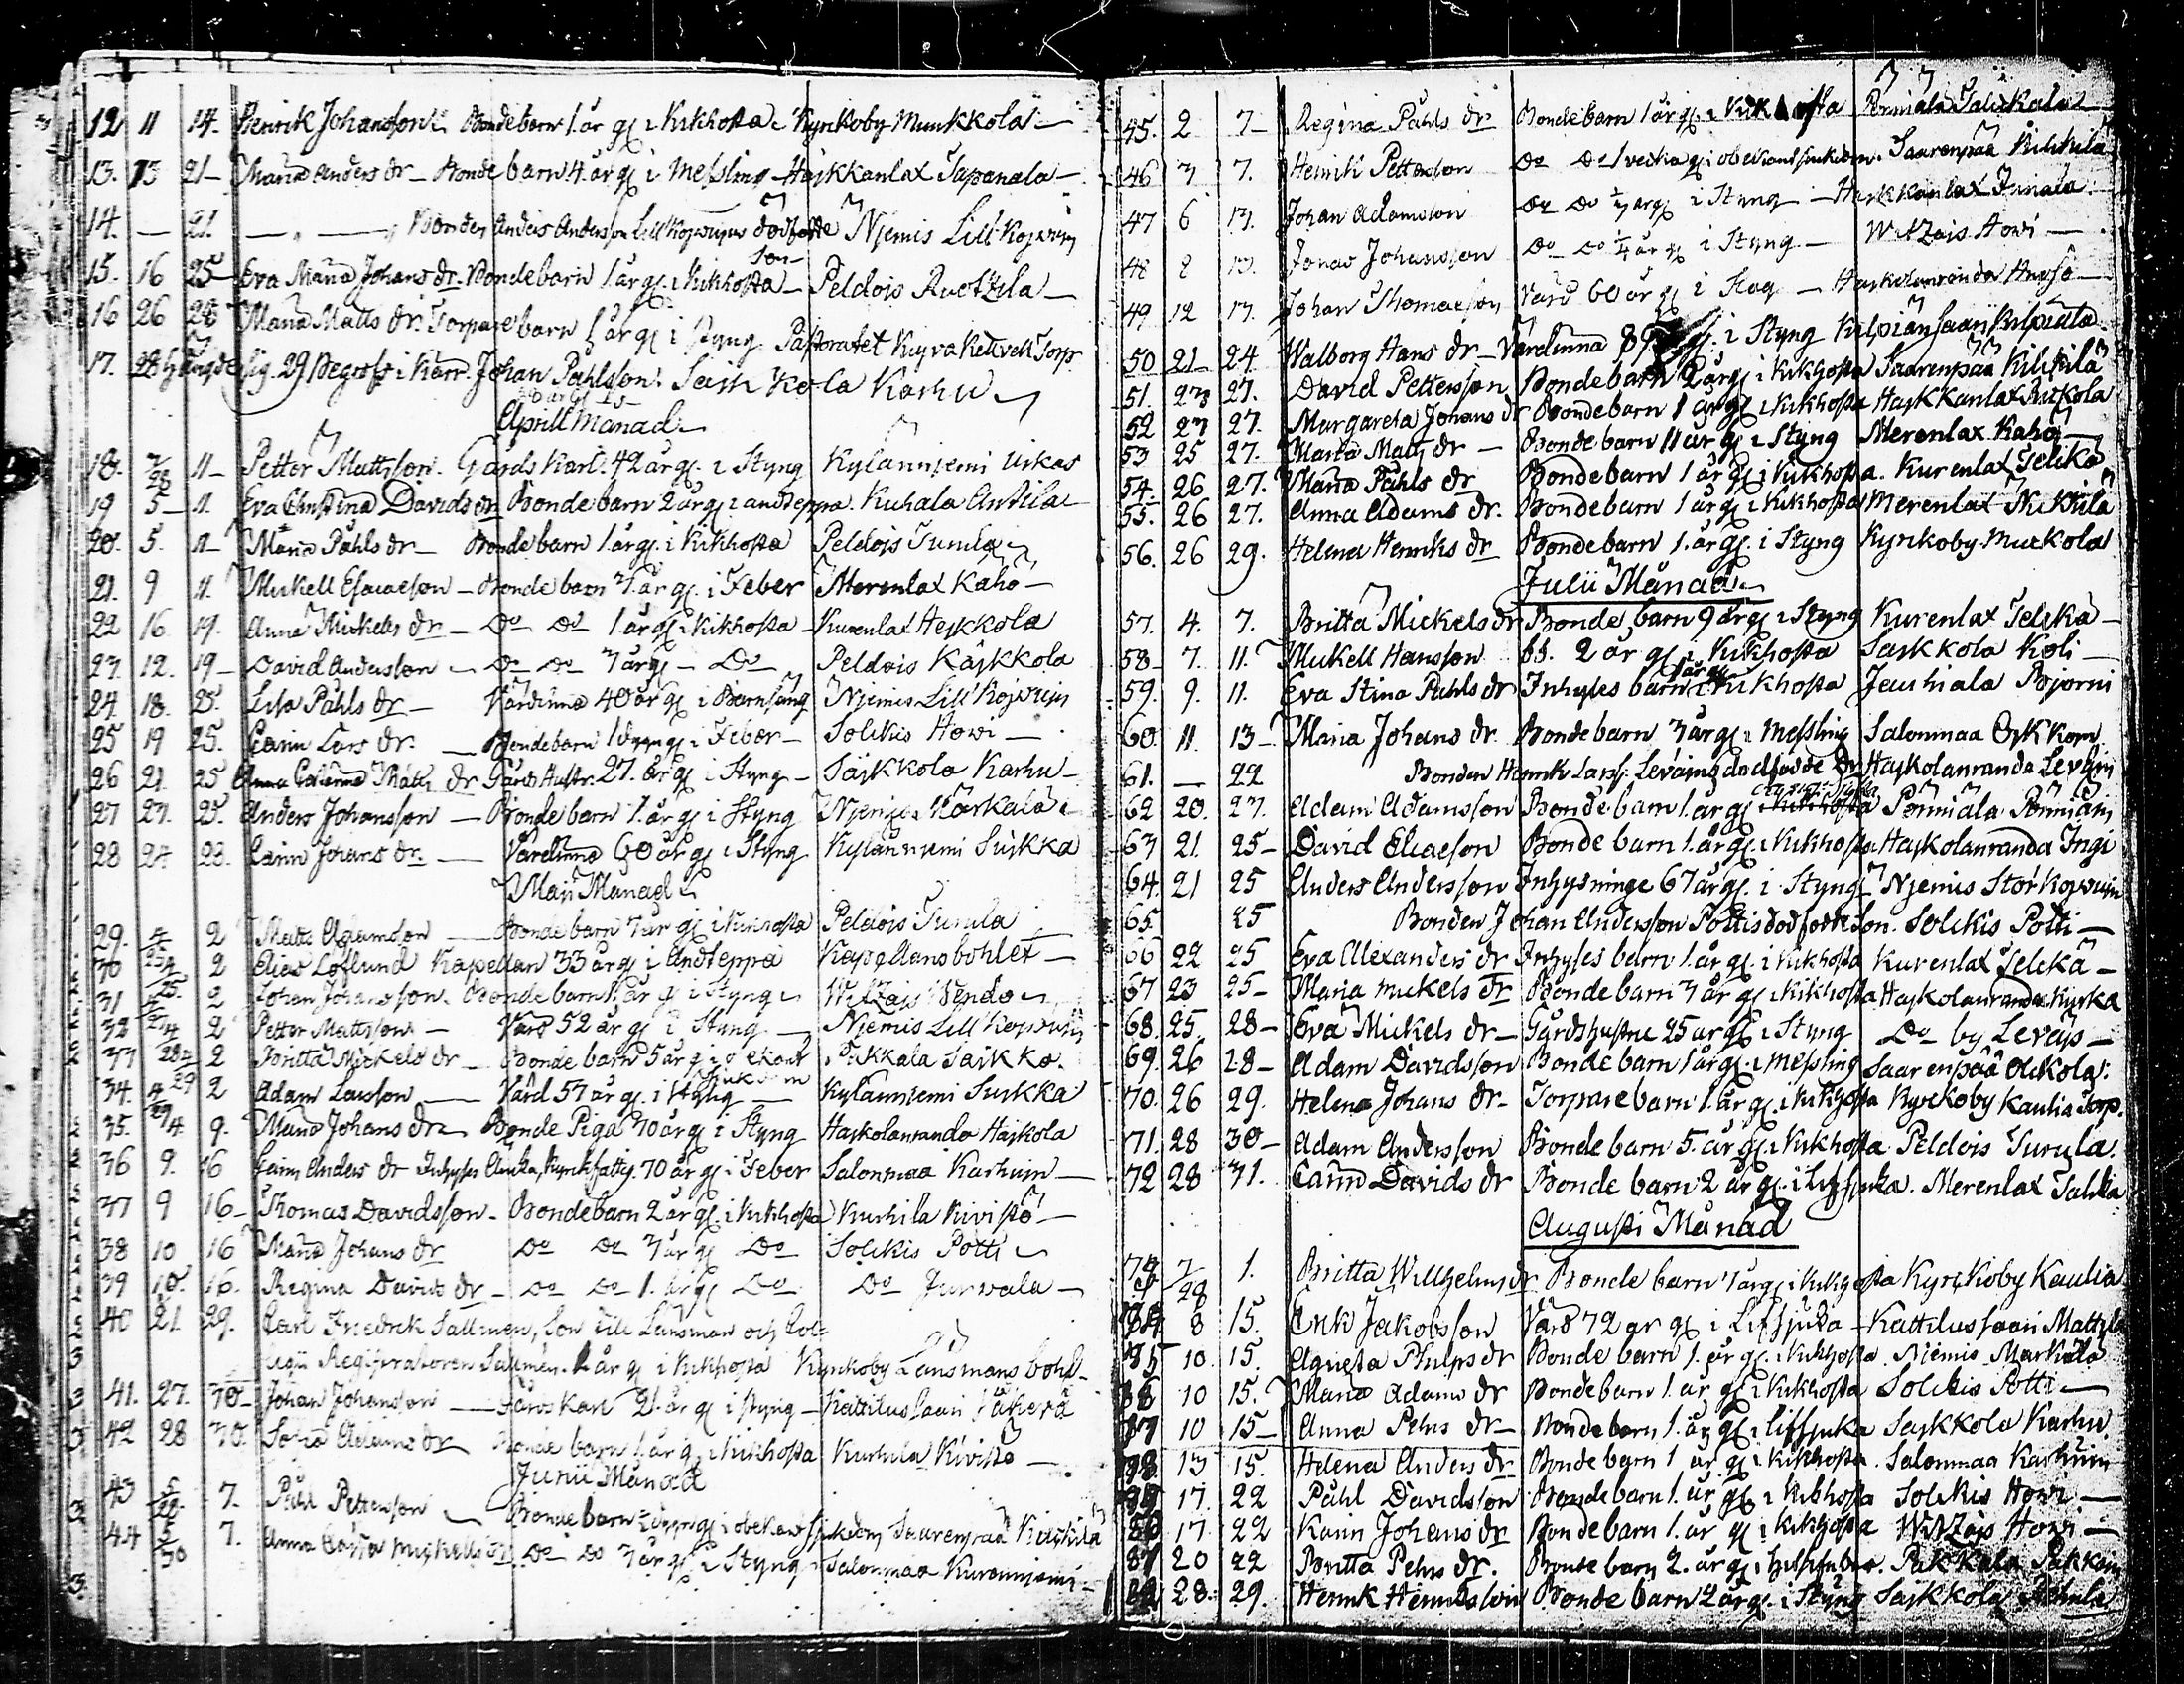 12 11 14. Henrik Johansson Bondebarn 1. år g. i Kikhosta Kyrkoby Munkkola
13. 13 21 Maria Anders dr Bonde barn 4. år g. i Messling Haskkanlax Tapanala
14. — 21. Bonden Anders Andersson Lill Kojwujus dödfödde Njemis Lill Kojwuin
Son
15. 16 25 Eva Maria Johans dr. Bondebarn 1 år g. i Kikhosta Peldois Ruotzila
16 26 28 Maria Matts dr. Torpare barn 1 år g. i styng Pastoratet Torp
17. 28 29 Johan Påhlsson. Säskkola Karhu
Aprill Månad
18. 3/28 11 Petter Mattsson. Gårds Karl. 42 år g. i Styng Kylännjemi Uikas
19 5 11. Eva Christina Davids dr Bonde barn 2 år g. i andteppa. Kuhala Anttila
20. 5. 11 Maria Påhls dr Bonde barn 1. år g. i Kikhosta Peldois Turula
21. 9 11. Mickell Esaiaeson Bonde barn 7. år g. i Feber Merenlax Kaho
22 16 19. Anna Mickels dr Do Do 1 år g. i Kikhosta Kurenlax Heskkola
23. 12. 19 David Andersson Do Do 3 år g. Do Peldois Käskkola
24 18. 25. Lisa Påhls dr Värdinna 40 år g. i Barnsäng Njemis Lill Kojwuin
25 19 25. Carin Lars dr. Bondebarn g. i Feber Solckis Howi
26 21. 25 Anna Matts dr Gårds Hustr. 27. år g. i Styng Säskkola Karhu
27 23. 25. Anders Johansson Bonde barn 1. år g. i Styng Njemis Markala
28 27. 28. Carin Johans dr. Värdinna 60 år g. i Styng Kylännjemi Suskka
Maji Månad
29. 4 2 Matts Adamson Bonde barn 3 år g. i Kikhosta Peldois Turula
30 2 Elias Löflund Kapellan 33 år g. i Andteppa Kapellansbohlet
31 2 Johan Johansson. Bonde barn 1. år g. i Styng Wilzais
32 2 Petter Mattsson Värd 52 år g. i Styng Njemis Lill Kojwuin
33 28 2 Britta Mickels dr Bonde barn 5 år g. i obekant Pukkala Saikko.
sjukdom
34. 29 2 Adam Larsson Värd 57 år g. i styng Kylännjemi Suskka
35. 29/4. 9. Maria Johans dr Bonde Piga 30 år g. i Styng Haskolanranda Haskola
36 9. 16 Carin Anders dr Inhyses Kyrckfattig. 70 år g. i Feber Salonmaa Karhuin
37 9 16 Thomas Davidsson. Bondebarn 2 år g. i Kikhosta Kurkila Kivistö
38 10 16 Maria Johans dr Do Do 3 år g. Do Solckis Potti
39 10. 16. Regina Davids dr Do Do 1. år g. Do Do Jurvala
40 21 29. Carl Fredrik Sallmen, Son till Länsman och Col-
legii Registratoren Sallmén. år g. i Kikhosta Kyrkoby Länsmans bohl
41. 27. 30 Johan Johansson Gårds karl 21. år g. i styng Kattilussaari
42 28 30. Sofia Adams dr Bonde barn 1. år g. i Kikhosta Kurkula Kivistö
Junii Månad
43 5/28. 7. Påhl Pettersson Bonde barn g. i obekant sjukdom Saarenpää Kilckilä
44 5/30 7. Anna Caisa Mickells dr Do Do 3 år g. i Styng Salonmaa Kurounjemi
45. 2 7 Regina Påhls dr Bondebarn 1 år g. i Kikhosta Pörniälä
46 3 7. Henrik Pettersson Do Do 1 vecka g. i obekant sjukdom. Saarenpää Kilckilä
47 6 13. Johan Adamsson Do Do år g. i Styng Haskkanlax Junala
48 8 13. Jonas Johansson Do Do 1/4 år g. i Styng Wilzais Howi
49 12 17. Johan Thomasson Värd 60 år g. i Haskolanranda
50 21 24 Walborg Hans dr Värdinna g. i Styng Kilpiänsaari Kilpiälä
51. 23 27. David Pettersson Bondebarn 2 år g. i Kikhosta Saarenpää Kilckilä
52 23 27. Margareta Johans dr Bondebarn 1 år g. i Kikhosta Haskkanlax Rickola
53 25 27. Maria Matts dr Bonde barn 11 år g. i Styng Merenlax Kaho
54. 26 27. Maria Påhls dr Bonde barn 1 år g. i Kikhosta. Kurenlax Jelckä
55. 26 27. Anna Adams dr. Bondebarn 1 år g. i Kikhosta Merenlax
56. 26 29. Helena Henriks dr Bonde barn 1. år g. i Styng Kyrkoby Muckola
Julii Månad
57. 4. 7. Britta Mickels dr Bonde barn 9 år g. i Styng Kurenlax Jelckä
58 7. 11. Mickell Hansson. 2 år g. i Kikhosta Saskkola Koli
59. 9. 11. Eva Stina Pahls dr Inhyses barn 1 år g. i Kikhosta Jauhiala Bjorni
60. 11. 13 Maria Johans dr. Bonde barn 3 år g. i Messling Salonmaa
61. — 22 Bonden Henrik Larss. Leväins dödfödde dr Haskolanranda Leväin
62 20. 27. Adam Adamsson Bonde barn 1. år g. Pörniälä Pörniäin
63 21. 25 David Eliaeson Bonde barn 1. år g. i Kikhosta Haskolanranda Ingi
64. 21 25 Anders Andersson Inhysninge 67 år g. i Styng Njemis Stor Kojwuin
65. 25 Bonden Johan Andersson Pottis dödfödde son. Solckis Potti
66 22 25 Eva Alexanders dr Inhyses barn 1. år g. i Kikhosta Kurenlax Jelckä
67 23 25 Maria Mickels dr Bonde barn 3 år g. i Kikhosta Haskolanranda Kyrka
68. 25. 28 Eva Mickels dr Gårdshustru 25 år g. i Styng Do by Leväjs
69. 26 28 Adam Davidsson Bonde barn 1 år g. i Messling Saarenpää Alckola.
70. 26 29. Helena Johans dr Torpare barn 1. år g. i Kikhosta Kyrckoby Kaulia Torp.
71. 28 30 Adam Andersson Bonde barn 5. år g. i Kikhosta Peldois Turula.
72 28 31. Carin Davids dr Bonde barn 2 år g. i Lifsjuka. Merenlax Tahka
Augusti Månad
7/28 1. Britta Wilhelms dr Bonde barn år g. i Kikhosta Kyrckoby Kaulia
8 15. Erik Jakobsson Värd 72 år g. i Lifsjuka Kattilussaari Mattila
10. 15. Agneta Philps dr Bonde barn 1. år g. i Kikhosta. Njemis Markala
10 15. Maria Adams dr Bondebarn 1. år g. i Kikhosta Solckis Potti
10 15 Anna Pehrs dr Bondebarn 1. år g. i Lifsjuka Saskkola Karhu
13 15. Helena Anders dr Bonde barn 1 år g. i Kikhosta. Salonmaa Karhuin
17. 22 Påhl Davidsson Bondebarn 1. år g. i Kikhosta Solckis Howi
17 22 Karin Johans dr Bondebarn 1. år g. i Kikhosta Wilzais Howi
20 22 Britta Pehrs dr. Bonde barn 2. år g. i Pukkala
28. 29. Henrik Henriksson Bonde barn 2 år g. i Styng Säskkola